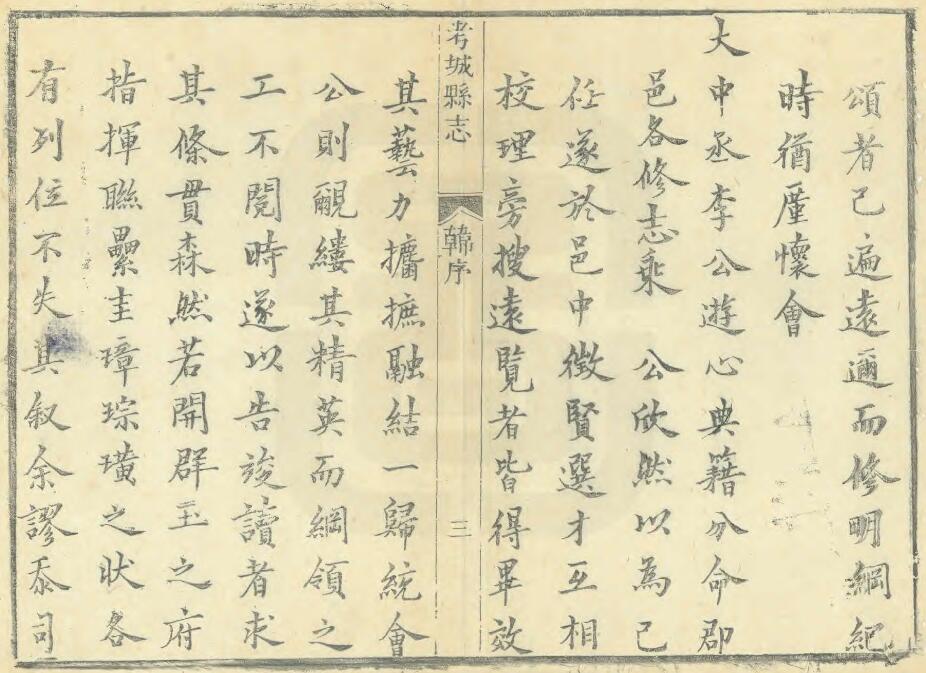 頌者已遍遠邇而修明綱紀
時猶廑懷會
大中丞李公遊心典籍分命郡
邑各修志乘　公欣然以為己
任遂於邑中徵賢選才互相
校理旁搜遠覽者皆得畢效
考城縣志
韓序
三
其藝力攟摭融結一歸統會
公則覼縷其精英而綱領之
工不閱時遂以告竣讀者求
其條貫森然若開群玉之府
指揮聯纍圭璋琮璜之狀各
有列位不失其叙余謬忝司